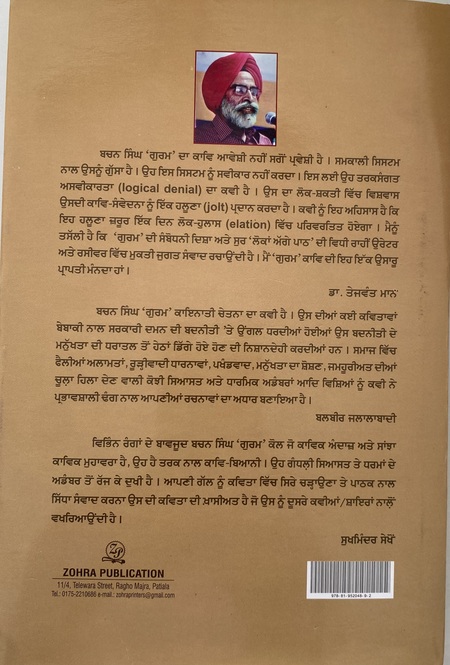 ਬਚਨ ਸਿੰਘ ‘ਗੁਰਮ’ ਦਾ ਕਾਵਿ ਆਵੇਸ਼ੀ ਨਹੀਂ ਸਗੋਂ ਪ੍ਰਵੇਸ਼ੀ ਹੈ । ਸਮਕਾਲੀ ਸਿਸਟਮ
ਨਾਲ ਉਸਨੂੰ ਗੁੱਸਾ ਹੈ । ਉਹ ਇਸ ਸਿਸਟਮ ਨੂੰ ਸਵੀਕਾਰ ਨਹੀਂ ਕਰਦਾ। ਇਸ ਲਈ ਉਹ ਤਰਕਸੰਗਤ
ਅਸਵੀਕਾਰਤਾ (logical denial) ਦਾ ਕਵੀ ਹੈ । ਉਸ ਦਾ ਲੋਕ-ਸ਼ਕਤੀ ਵਿੱਚ ਵਿਸ਼ਵਾਸ
ਉਸਦੀ ਕਾਵਿ-ਸੰਵੇਦਨਾ ਨੂੰ ਇੱਕ ਹਲੂਣਾ (jolt) ਪ੍ਰਦਾਨ ਕਰਦਾ ਹੈ। ਕਵੀ ਨੂੰ ਇਹ ਅਹਿਸਾਸ ਹੈ ਕਿ
ਇਹ ਹਲੂਣਾ ਜ਼ਰੂਰ ਇੱਕ ਦਿਨ ਲੋਕ-ਹੁਲਾਸ (elation) ਵਿੱਚ ਪਰਿਵਰਤਿਤ ਹੋਏਗਾ । ਮੈਨੂੰ
ਤਸੱਲੀ ਹੈ ਕਿ ‘ਗੁਰਮ’ ਦੀ ਸੰਬੋਧਨੀ ਦਿਸ਼ਾ ਅਤੇ ਸੁਰ ‘ਲੋਕਾਂ ਅੱਗੇ ਪਾਠ’ ਦੀ ਵਿਧੀ ਰਾਹੀਂ ਉਰੇਟਰ
ਅਤੇ ਰਸੀਵਰ ਵਿੱਚ ਮੁਕਤੀ ਜੁਗਤ ਸੰਵਾਦ ਰਚਾਉਂਦੀ ਹੈ । ਮੈਂ ‘ਗੁਰਮ’ ਕਾਵਿ ਦੀ ਇਹ ਇੱਕ ਉਸਾਰੂ
ਪ੍ਰਾਪਤੀ ਮੰਨਦਾ ਹਾਂ।
ਡਾ. ਤੇਜਵੰਤ ਮਾਨ
ਬਚਨ ਸਿੰਘ ‘ਗੁਰਮ’ ਕਾਇਨਾਤੀ ਚੇਤਨਾ ਦਾ ਕਵੀ ਹੈ । ਉਸ ਦੀਆਂ ਕਈ ਕਵਿਤਾਵਾਂ
ਬੇਬਾਕੀ ਨਾਲ ਸਰਕਾਰੀ ਦਮਨ ਦੀ ਬਦਨੀਤੀ 'ਤੇ ਉੱਗਲ ਧਰਦੀਆਂ ਹੋਈਆਂ ਉਸ ਬਦਨੀਤੀ ਦੇ
ਮਨੁੱਖਤਾ ਦੀ ਧਰਾਤਲ ਤੋਂ ਹੇਠਾਂ ਡਿੱਗੇ ਹੋਏ ਹੋਣ ਦੀ ਨਿਸ਼ਾਨਦੇਹੀ ਕਰਦੀਆਂ ਹਨ । ਸਮਾਜ ਵਿੱਚ
ਫੈਲੀਆਂ ਅਲਾਮਤਾਂ, ਰੂੜ੍ਹੀਵਾਦੀ ਧਾਰਨਾਵਾਂ, ਪਖੰਡਵਾਦ, ਮਨੁੱਖਤਾ ਦਾ ਸ਼ੋਸ਼ਣ, ਜਮਹੂਰੀਅਤ ਦੀਆਂ
ਚੂਲਾਂ ਹਿਲਾ ਦੇਣ ਵਾਲੀ ਕੋਝੀ ਸਿਆਸਤ ਅਤੇ ਧਾਰਮਿਕ ਅਡੰਬਰਾਂ ਆਦਿ ਵਿਸ਼ਿਆਂ ਨੂੰ ਕਵੀ ਨੇ
ਪ੍ਰਭਾਵਸ਼ਾਲੀ ਢੰਗ ਨਾਲ ਆਪਣੀਆਂ ਰਚਨਾਵਾਂ ਦਾ ਅਧਾਰ ਬਣਾਇਆ ਹੈ ।
ਬਲਬੀਰ ਜਲਾਲਾਬਾਦੀ
ਵਿਭਿੰਨ ਰੰਗਾਂ ਦੇ ਬਾਵਜੂਦ ਬਚਨ ਸਿੰਘ ‘ਗੁਰਮ’ ਕੋਲ ਜੋ ਕਾਵਿਕ ਅੰਦਾਜ਼ ਅਤੇ ਸਾਂਝਾ
ਕਾਵਿਕ ਮੁਹਾਵਰਾ ਹੈ, ਉਹ ਹੈ ਤਰਕ ਨਾਲ ਕਾਵਿ-ਬਿਆਨੀ । ਉਹ ਗੰਧਲੀ ਸਿਆਸਤ ਤੇ ਧਰਮਾਂ ਦੇ
ਅਡੰਬਰ ਤੋਂ ਰੱਜ ਕੇ ਦੁਖੀ ਹੈ । ਆਪਣੀ ਗੱਲ ਨੂੰ ਕਵਿਤਾ ਵਿੱਚ ਸਿਰੇ ਚੜ੍ਹਾਉਣਾ ਤੇ ਪਾਠਕ ਨਾਲ
ਸਿੱਧਾ ਸੰਵਾਦ ਕਰਨਾ ਉਸ ਦੀ ਕਵਿਤਾ ਦੀ ਖ਼ਾਸੀਅਤ ਹੈ ਜੋ ਉਸ ਨੂੰ ਦੂਸਰੇ ਕਵੀਆਂ/ਸ਼ਾਇਰਾਂ ਨਾਲੋਂ
ਵਖਰਿਆਉਂਦੀ ਹੈ ।
ਸੁਖਮਿੰਦਰ ਸੇਖੋਂ
ZP
ZOHRA PUBLICATION
11/4, Telewara Street, Ragho Majra, Patiala
Tel.: 0175-2210686 e-mail.: zohraprinters@gmail.com
978-81-952048-8-2